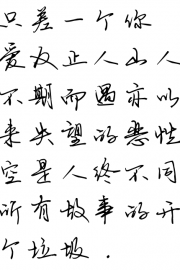 只差一个你
爱友正人山人
不期而遇亦以
来失望的恶性
空是人终不同
所有故事的开
个垃圾.